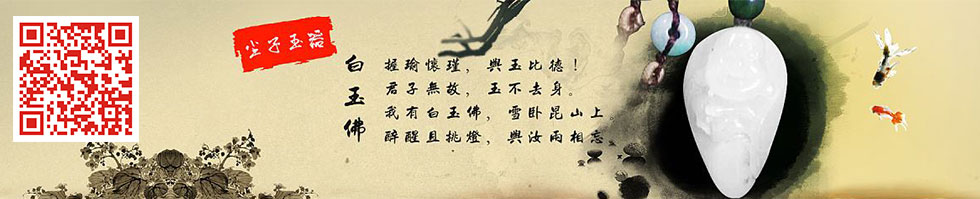 尘子玉器
白玉佛
握瑜懷瑾，與玉比德！
君子無故，玉不去身。
我有白玉佛，雪卧昆山上
醉醒且挑燈，與汝兩相忘